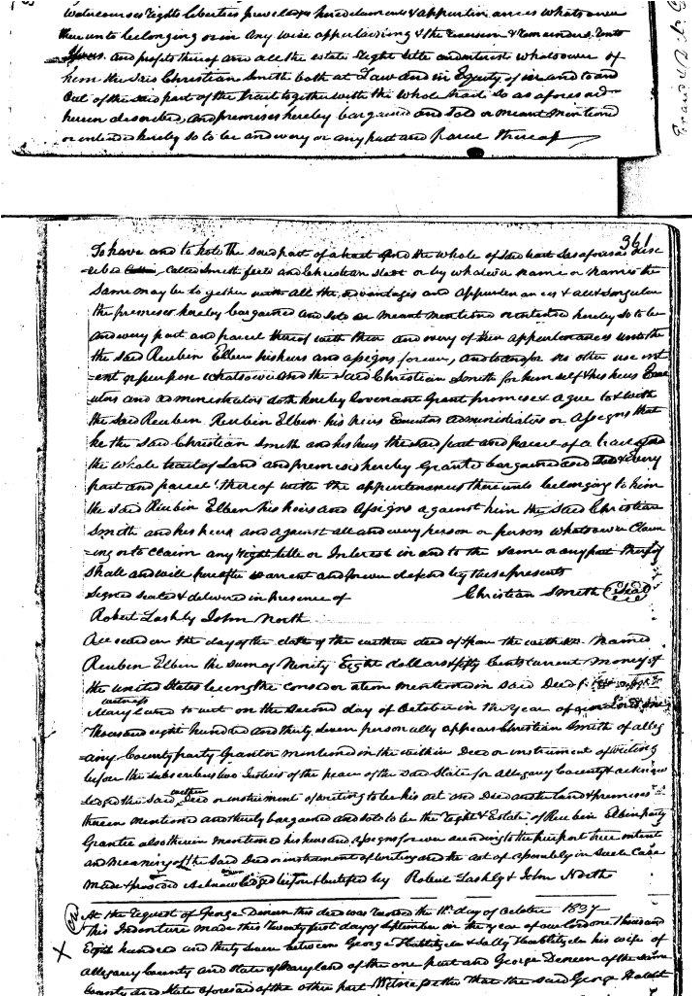 watercourses Rights liberties priveledges heredaments & appurtenances whatsoever
there unto belonging or in any wise appertaining & the Revercon & remainders Rents
Issues and profits thereof and all the estate Right title and interest whatsoever of
him the said Christian Smith both at Law and in Equity of in and to and
out of the said part of the tract together with the whole tract so as aforesaid
herein described, and premises hereby bargained and sold or meant mentioned
or intended hereby so to be and every or any part and parcel thereof
361
To have and to hold the said part of a tract and the whole of said tract as aforesaid desc
=ribed called Smith field and Christian or by whatever name or names the
same may be together with all the advantages and appurtenances & all & singular
the premises hereby bargained and sold or meant mentioned or intended hereby so to be
and every part and parcel thereof with their and every of their appurtenances unto the
the said Reubin Elben his heirs and assigns forever, and to and for no other use int
=ent or purpose whatsoever And the said Christian Smith for himself & his heirs Exec
utors and administrators doth hereby Covenant Grant promise & agree to & with
the said Reuben Reuben Elben his heirs Executors administrators or Assigns that
he the said Christian Smith and his heirs the said part and parcel of a tract and
the whole tract of Land and premises hereby Granted bargained and Sold & every
part and parcel thereof with the appurtenances thereunto belonging to him
the said Reubin Elben his heirs and Assigns against him the said Christian
Smith and his heirs and against all and every person or persons whatsoever Claim
=ing or to claim any Right title or Interest in and to the same or any part thereof
shall and will hereafter warrant and forever defend by these presents
Signed sealed & delivered in presence of Christian Smith Seal
Robert Lashly John North
Received on the day of the date of the within deed of from the within named
Reuben Elben the sum of Ninety Eight dollars & fifty Cents current money of
the United States being the consideration mentioned in said Deed
witness
Maryland to wit on the Second day of October in the year of our Lord one
Thousand eight hundred and thirty seven personally appears Christian Smith of alleg
=any County party Grantor mentioned in the within Deed or instrument of writing
before the subscribers two Justices of the peace of the said State for Allegany County & acknow
ledged the said within Deed or instrument of writing to be his act and Deed and the land & premises
therein mentioned and thereby bargained and sold to be the Right & Estate of Reubin Elbin party
Grantee also therein mentioned his heirs and assigns forever according to the purport true intent
and meaning of the said Deed or instrument of writing and the act of assembly in such Case
made & provided Acknowledged before & certified by Robert Lashly & John North
At the request of George Deneen this deed was Recorded the 11th day of October 1837
This Indenture made this twenty first day of September in the year of our Lord one thousand
Eight hundred and thirty seven between George & Sally his wife of
allegany County and state of Maryland of the one part and George Deneen of the same
County and State aforesaid of the other part Witnesseth that the said George